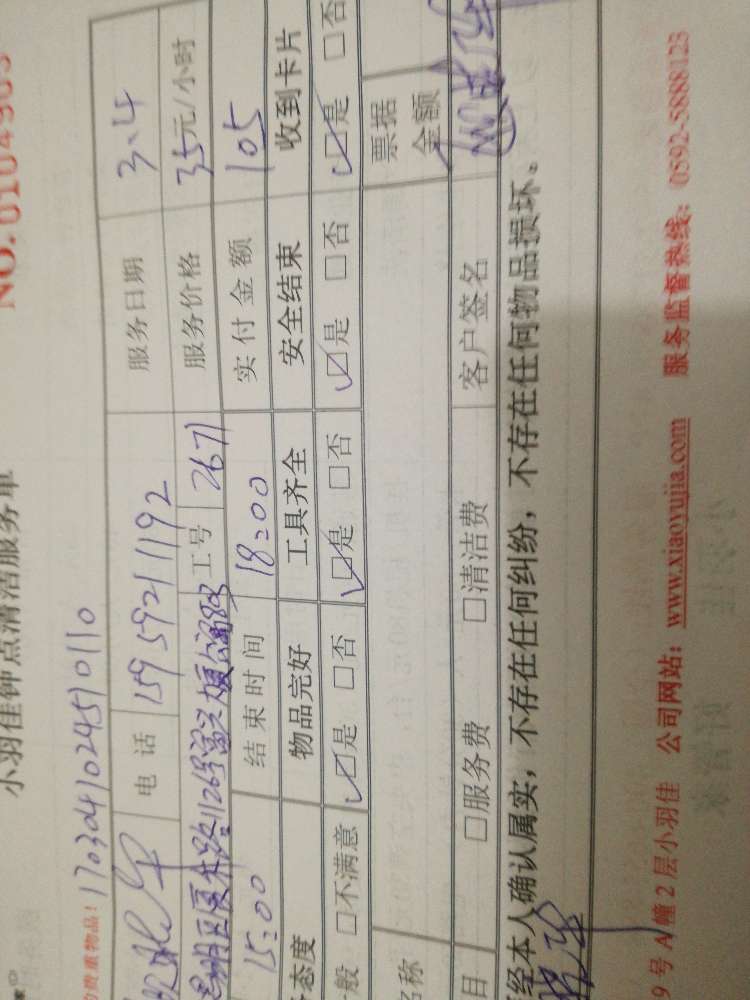 小羽佳钟点清洁服务单
NO.0104903
的贵重物品! 1703041024510110
电话 15959211192 服务日期 3.4
1126号 工号 2671 服务价格 35元/小时
15:00 结束时间 18:00 实付金额 105
态度 物品完好 工具齐全 安全结束 收到卡片
般 □不满意 ☑是 □否 ☑是 □否 ☑是 □否 ☑是 □否
名称 票据金额
目 □服务费 □清洁费 客户签名
经本人确认属实,不存在任何纠纷,不存在任何物品损坏。
9号A幢2层小羽佳 公司网站:www.xiaoyujia.com 服务监督热线:0592-5888123